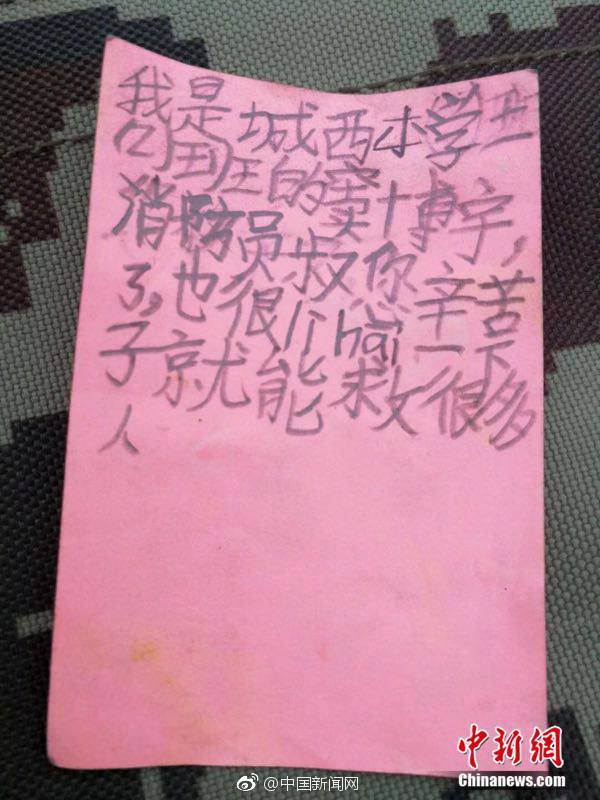 我是城西小学
班的窦博宇，
消防员叔你辛苦
了，也很lihai一下
子就能救很多
人
@中国新闻网
中新網
Chinanews.com